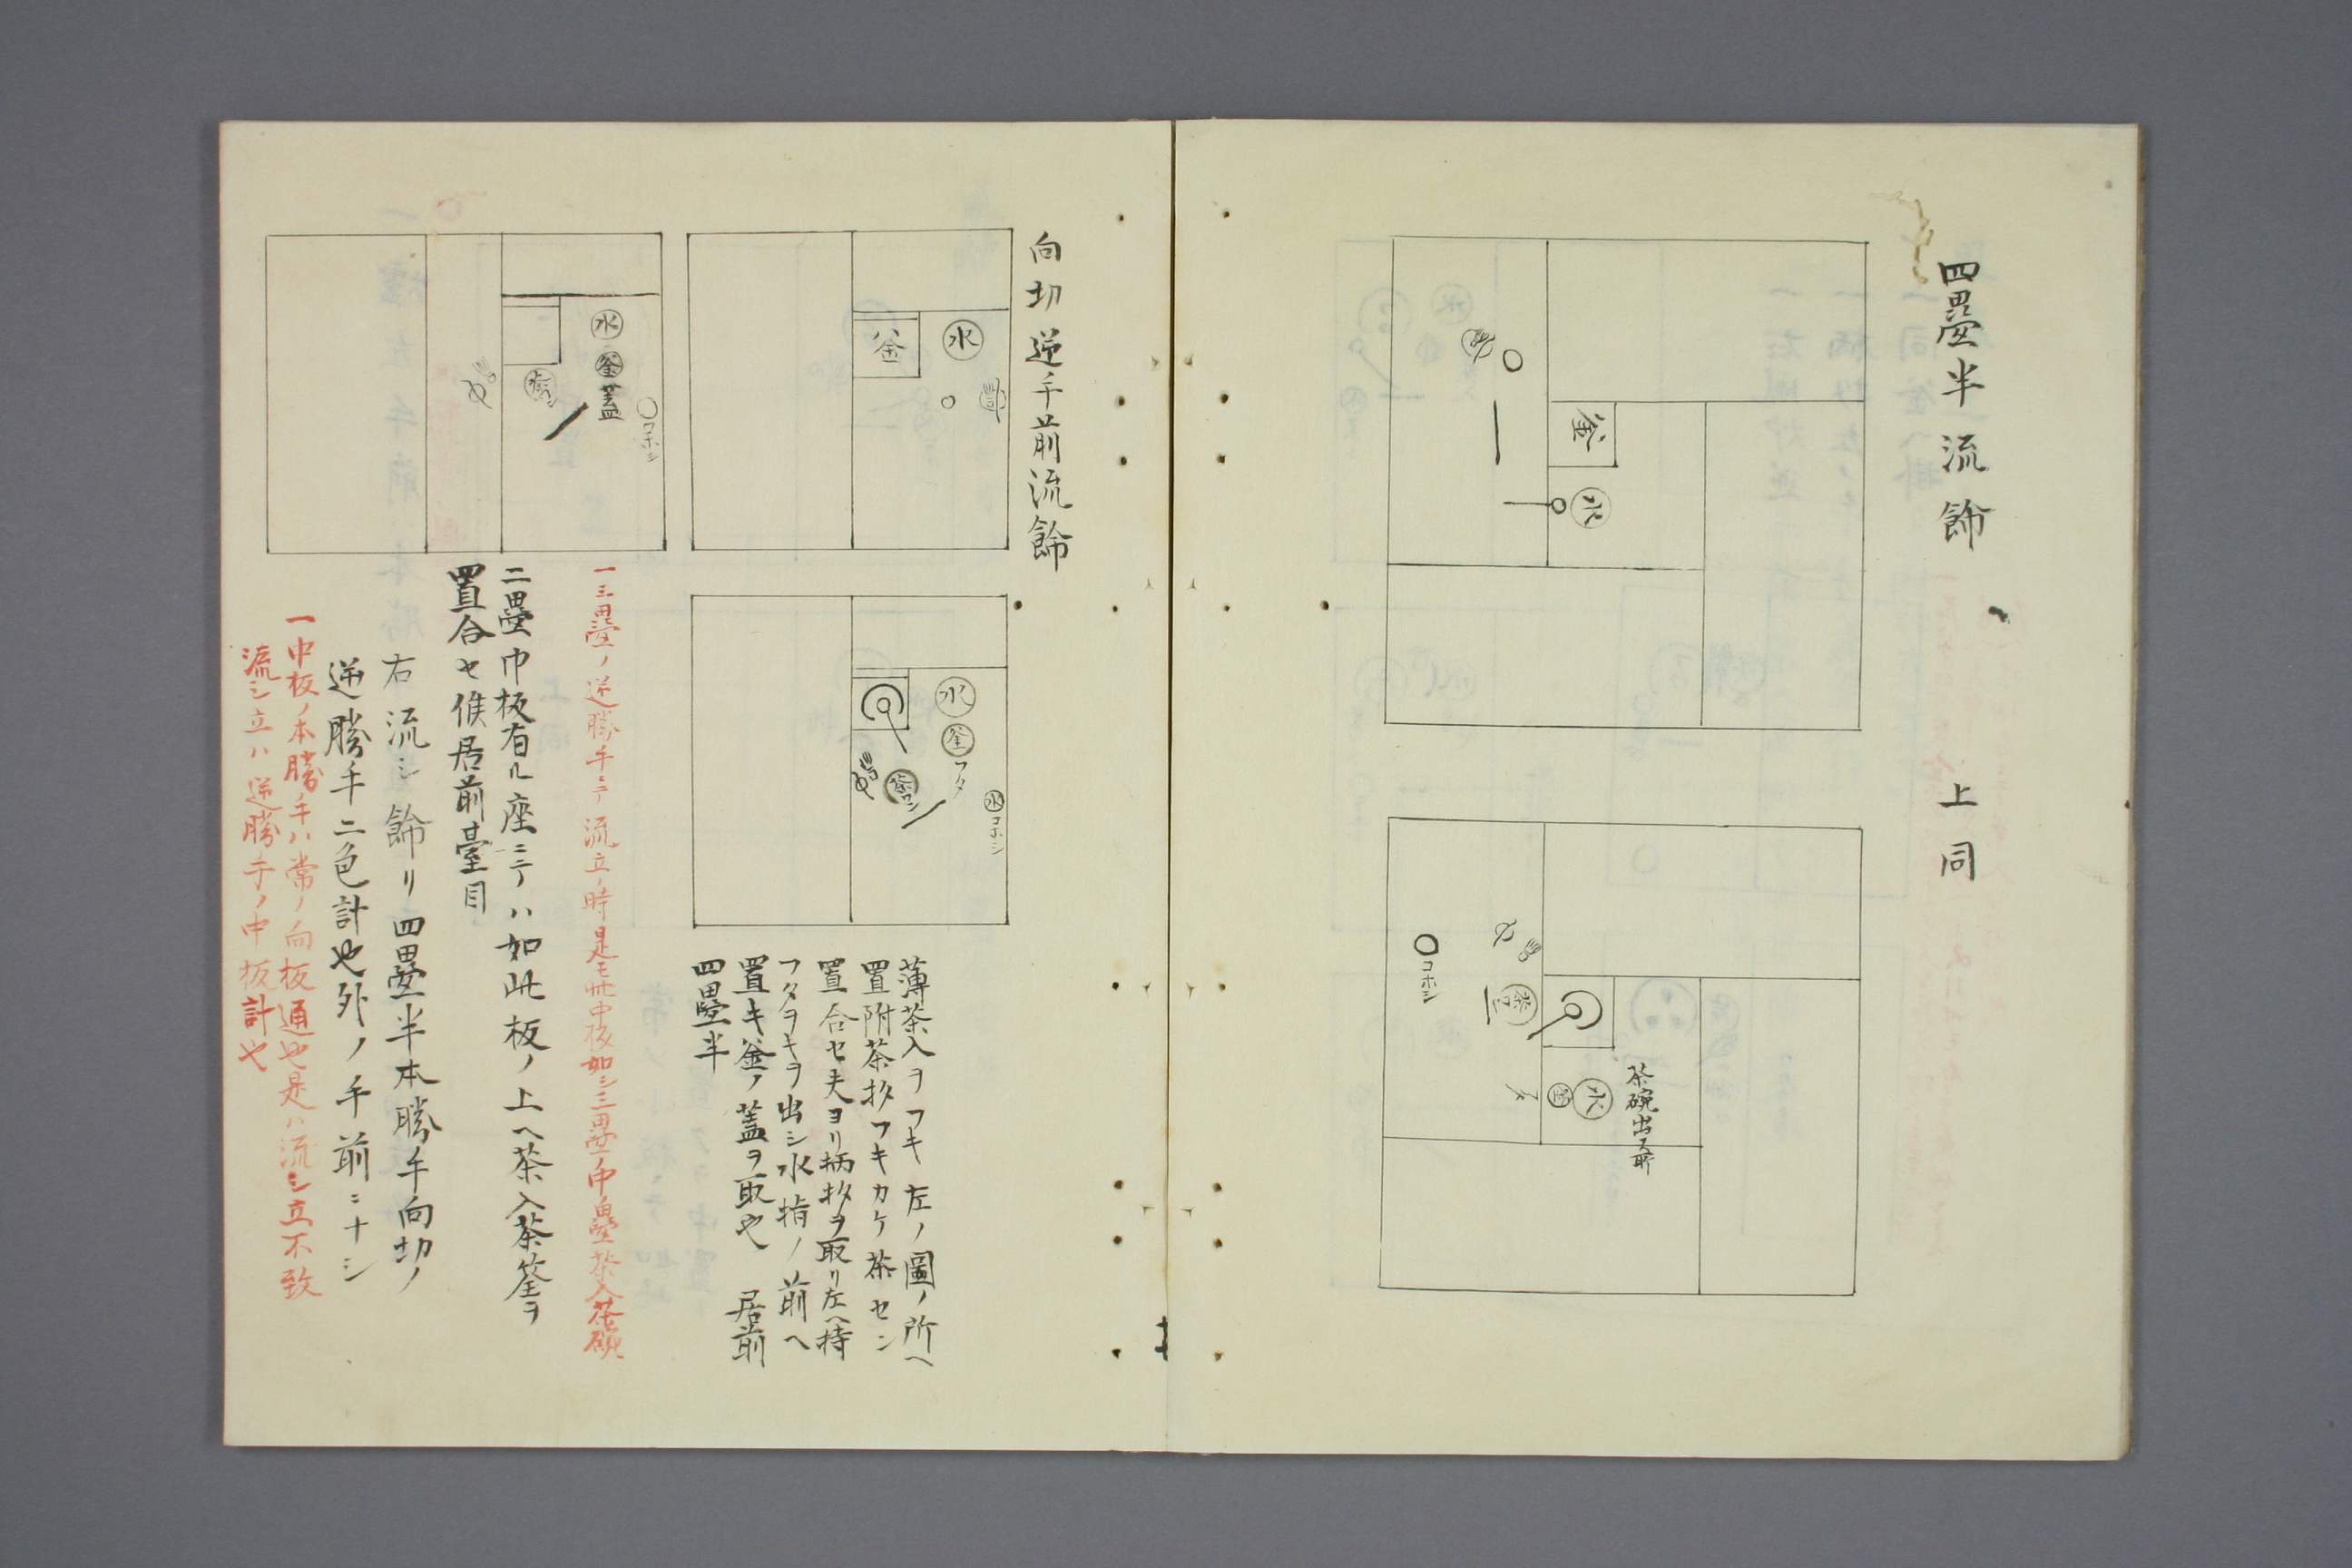 四畳半流餝
釜
水
上同
コホシ
茶
水
茶碗出ス前
向切逆手前流餝
釜
水
水
釜
フタ
水コホシ
薄茶入ヲフキ左ノ圖ノ所ヘ
置附茶杓フキカケ茶セン
置合セ夫ヨリ柄杓ヲ取リ左ヘ持
フタヲキヲ出シ水指ノ前ヘ
置キ釜ノ蓋ヲ取也 居前
四畳半
水
釜
蓋
コホシ
一三畳ノ逆勝手ニテ流立ノ時是モ此中板如シ三畳ノ中畳茶入茶碗
二畳中板有ル座ニテハ如此板ノ上ヘ茶入茶筌ヲ
置合セ候居前臺目
右流シ餝リ四畳半本勝手向切ノ
逆勝手二色計也外ノ手前ニナシ
一中板ノ本勝手ハ常ノ向板通也是ハ流シ立不致
流シ立ハ逆勝手ノ中板計也